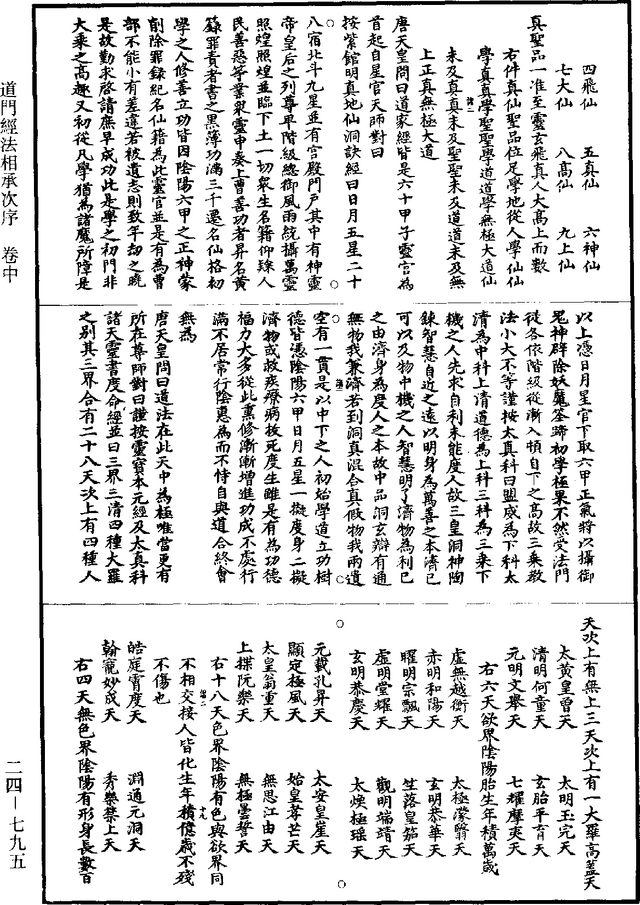 道門經法相承次序　卷中
二四—七九五
四飛仙　五真仙　六神仙
七大仙　八高仙　九上仙
真聖品一准至靈玄飛真人大高上而數
右件真仙聖品位足學地從人學仙仙
學真真學聖聖學道道學無極大道仙
未及真真未及聖聖未及道道未及無
上正真無極大道
唐天皇問曰道家經皆是六十甲子靈官為
首起自星官天師對曰
按紫館明真地仙洞訣經曰日月五星二十
八宿北斗九星並有宮殿門戶其中有神靈
帝皇后之列尊卑階級總御風雨統攝萬靈
照煌照煌並臨下土一切眾生名籍仰隸人
民善惡等業眾靈申奏上曹善功者昇名黃
籙罪責者書之黑簿功滿三千遷名仙格初
學之人修善立功皆因陰陽六甲之正神蒙
削除罪錄紀名仙籍為此靈官並是有為曹
部不能小有差違若被遺志則致年劫之曉
是故勤求啓請庶早成功此是學之初門非
大乘之高趣又初從凡學猶為諸魔所障是
以上憑日月星官下取六甲正氣將以攝御
鬼神辟除妖魔筌蹄初學極果不然受法門
徒各依階級從漸入頓自下之高故三乘教
法小大不等謹按太真科曰盟威為下科太
清為中科上清道德為上科三科為三乘下
機之人先求自利未能度人故三皇洞神陶
鍊智慧自近之遠以明身為萬善之本濟已
可以及物中機之人智慧明了濟物為利已
之由濟身為度人之本故中品洞玄辯有通
無物我兼濟若到洞真混合真假物我兩遺
空有一貫是以中下之人初始學道立功樹
德皆憑陰陽六甲日月五星一擬度身二擬
濟物或救疾療病拔死度生雖是有為功德
福力大多從此熏修漸漸增進功成不處行
滿不居常行陰惠為而不恃自與道合終會
無為
唐天皇問曰道法在此天中為極唯當更有
所在尊師對曰謹按靈寶本元經及太真科
諸天靈書度命經並曰三界三清四種大羅
之別其三界合有二十八天次上有四種人
天次上有無上三天次上有一大羅高蓋天
太黃皇曾天　太明玉完天
清明何童天　玄胎平育天
元明文舉天　七耀摩夷天
右六天欲界陰陽胎生年積萬歲
虛無越衡天　太極濛翳天
赤明和陽天　玄明恭華天
曜明宗飄天　竺落皇笳天
虛明堂耀天　觀明端靖天
玄明恭慶天　太煥極瑤天
元載孔昇天　太安皇崖天
顯定極風天　始皇孝芒天
太皇翁重天　無思江由天
上揲阮樂天　無極曇誓天
右十八天色界陰陽有色與欲界同
不相交接人皆化生年積億歲不殘
不傷也
皓庭霄度天　淵通元洞天
翰寵妙成天　秀樂禁上天
右四天無色界陰陽有形身長數百